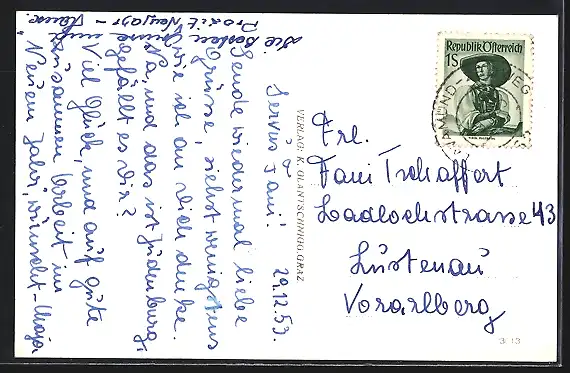 29.12.53.
Servus
Fani!
Sende wiedermal liebe
Grüsse, siehst wenigstens
wie ich an Dich denke.
Na, und das ist Judenburg,
gefällt es Dir?
Viel Glück, und auf gute
Zusammenarbeit im
Neuen Jahr, wünscht - Maja
Die besten Grüsse und
Prosit Neujahr -
VERLAG: K. GLANTSCHNIGG, GRAZ
Republik Österreich
1S
Frl.
Fani Tschaffert
Loadlochstrasse 43
Lustenau
Vorarlberg
3 13